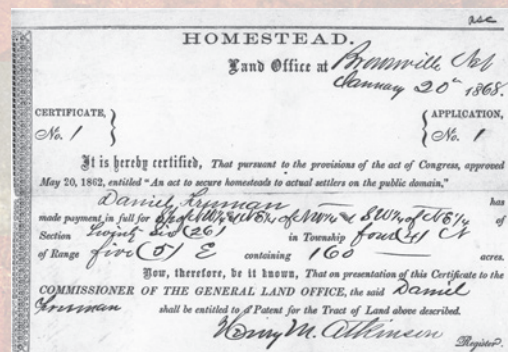 HOMESTEAD.
Land Office at Brownville Neb
January 20th 1868.
CERTIFICATE, No. 1
APPLICATION, No. 1
It is hereby certified, That pursuant to the provisions of the act of Congress, approved
May 20, 1862, entitled "An act to secure homesteads to actual settlers on the public domain,"
Daniel Freeman has
made payment in full for of NW¼ & SW¼ of NE¼ of
Section Twenty Six (26) in Township four (4) N
of Range five (5) E containing 160 acres.
Now, therefore, be it known, That on presentation of this Certificate to the
COMMISSIONER OF THE GENERAL LAND OFFICE, the said Daniel
Freeman shall be entitled to a Patent for the Tract of Land above described.
Henry M. Atkinson Register.